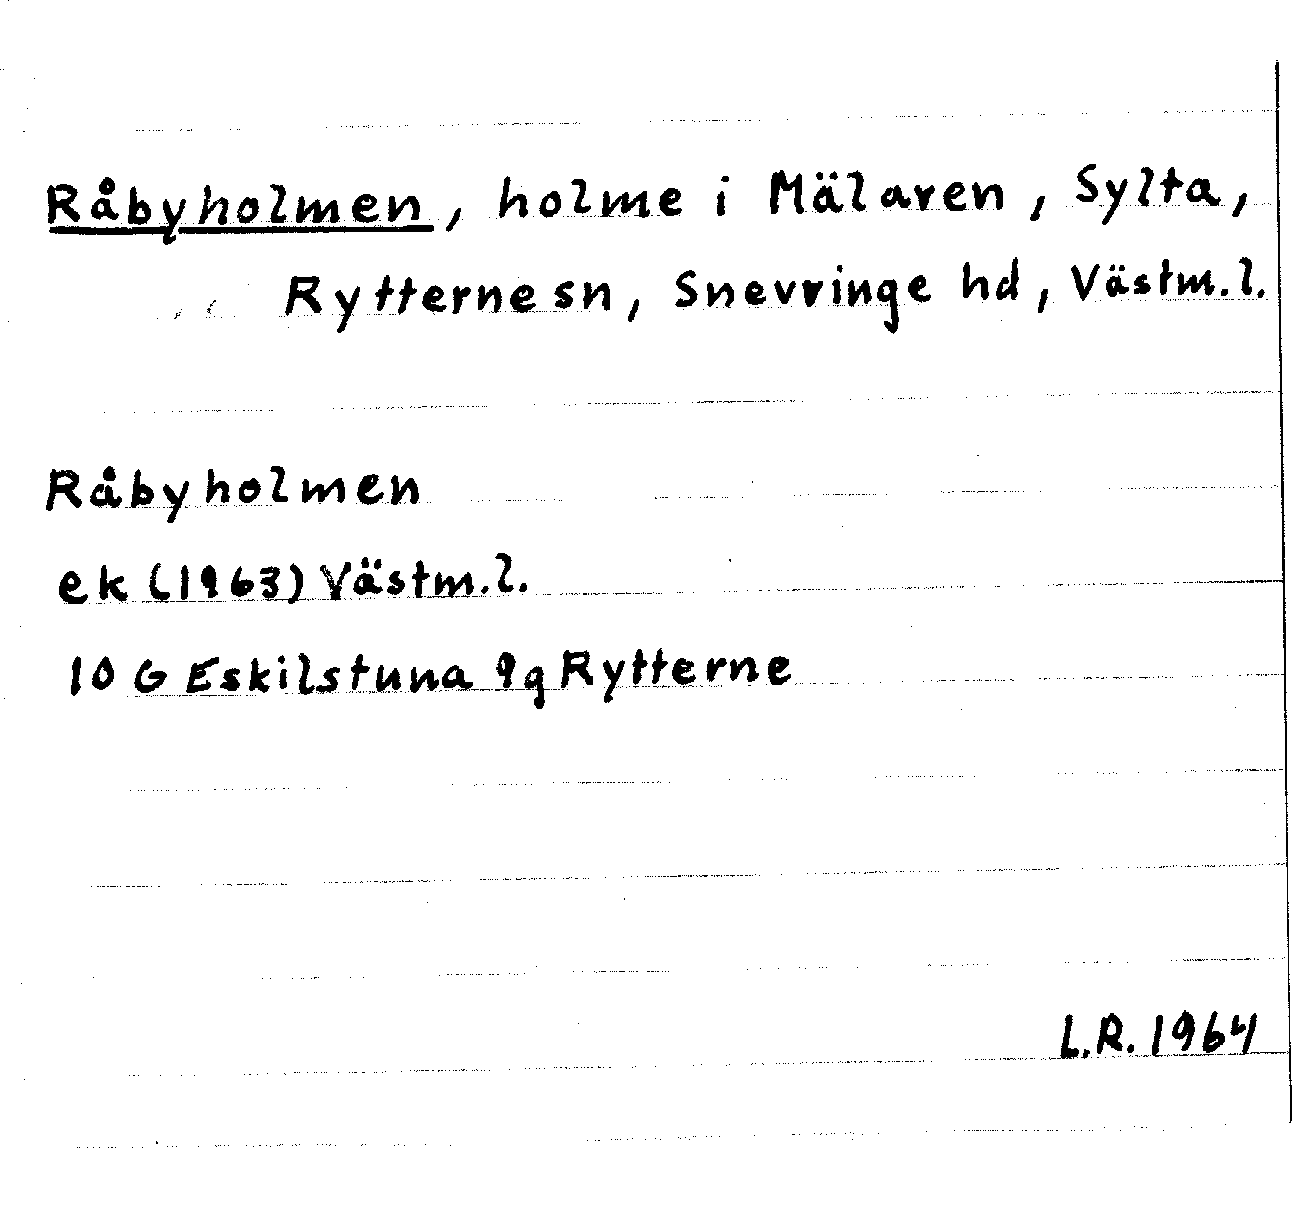 Råbyholmen, holme i Mälaren, Sylta,
Rytterne sn, Snevringe hd, Västm.l.
Råbyholmen
ek (1963) Västm.l.
10 G Eskilstuna 9g Rytterne
L.R. 1964